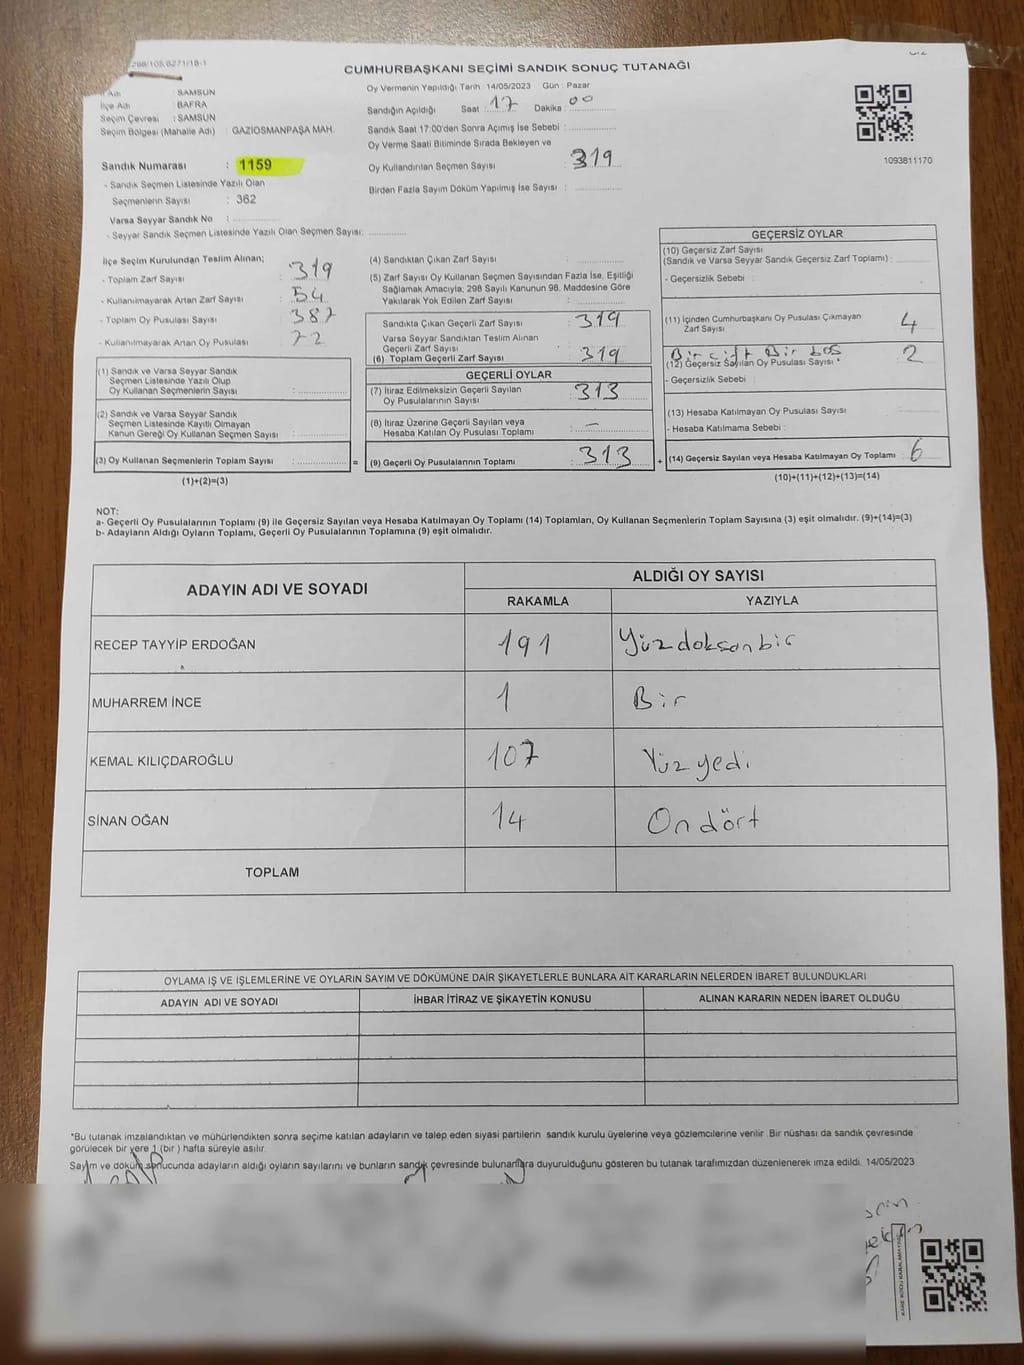 268/105.6271/18-1
CUMHURBAŞKANI SEÇİMİ SANDIK SONUÇ TUTANAĞI
İl Adı : SAMSUN
İlçe Adı : BAFRA
Seçim Çevresi : SAMSUN
Seçim Bölgesi (Mahalle Adı) : GAZİOSMANPAŞA MAH.
Sandık Numarası : 1159
- Sandık Seçmen Listesinde Yazılı Olan
Seçmenlerin Sayısı : 362
Varsa Seyyar Sandık No :
- Seyyar Sandık Seçmen Listesinde Yazılı Olan Seçmen Sayısı:
Oy Vermenin Yapıldığı Tarih 14/05/2023 Gün : Pazar
Sandığın Açıldığı Saat : 17 Dakika : 00
Sandık Saat 17:00'den Sonra Açımış İse Sebebi :
Oy Verme Saati Bitiminde Sırada Bekleyen ve
Oy Kullandırılan Seçmen Sayısı : 319
Birden Fazla Sayım Döküm Yapılmış İse Sayısı :
1093811170
İlçe Seçim Kurulundan Teslim Alınan;
- Toplam Zarf Sayısı : 319
- Kullanılmayarak Artan Zarf Sayısı : 54
- Toplam Oy Pusulası Sayısı : 387
- Kullanılmayarak Artan Oy Pusulası : 72
(1) Sandık ve Varsa Seyyar Sandık
Seçmen Listesinde Yazılı Olup
Oy Kullanan Seçmenlerin Sayısı :
(2) Sandık ve Varsa Seyyar Sandık
Seçmen Listesinde Kayıtlı Olmayan
Kanun Gereği Oy Kullanan Seçmen Sayısı :
(3) Oy Kullanan Seçmenlerin Toplam Sayısı :
(1)+(2)=(3)
(4) Sandıktan Çıkan Zarf Sayısı :
(5) Zarf Sayısı Oy Kullanan Seçmen Sayısından Fazla İse, Eşitliği
Sağlamak Amacıyla; 298 Sayılı Kanunun 98. Maddesine Göre
Yakılarak Yok Edilen Zarf Sayısı :
Sandıkta Çıkan Geçerli Zarf Sayısı : 319
Varsa Seyyar Sandıktan Teslim Alınan
Geçerli Zarf Sayısı :
(6) Toplam Geçerli Zarf Sayısı : 319
GEÇERLİ OYLAR
(7) İtiraz Edilmeksizin Geçerli Sayılan
Oy Pusulalarının Sayısı : 313
(8) İtiraz Üzerine Geçerli Sayılan veya
Hesaba Katılan Oy Pusulası Toplamı : –
= (9) Geçerli Oy Pusulalarının Toplamı : 313
GEÇERSİZ OYLAR
(10) Geçersiz Zarf Sayısı
(Sandık ve Varsa Seyyar Sandık Geçersiz Zarf Toplamı) :
- Geçersizlik Sebebi :
(11) İçinden Cumhurbaşkanı Oy Pusulası Çıkmayan
Zarf Sayısı 4
Bir çift Bir boş 2
(12) Geçersiz Sayılan Oy Pusulası Sayısı
- Geçersizlik Sebebi :
(13) Hesaba Katılmayan Oy Pusulası Sayısı
- Hesaba Katılmama Sebebi :
+ (14) Geçersiz Sayılan veya Hesaba Katılmayan Oy Toplamı : 6
(10)+(11)+(12)+(13)=(14)
NOT:
a- Geçerli Oy Pusulalarının Toplamı (9) ile Geçersiz Sayılan veya Hesaba Katılmayan Oy Toplamı (14) Toplamları, Oy Kullanan Seçmenlerin Toplam Sayısına (3) eşit olmalıdır. (9)+(14)=(3)
b- Adayların Aldığı Oyların Toplamı, Geçerli Oy Pusulalarının Toplamına (9) eşit olmalıdır.
ADAYIN ADI VE SOYADI ALDIĞI OY SAYISI
RAKAMLA YAZIYLA
RECEP TAYYİP ERDOĞAN 191 Yüzdoksanbir
MUHARREM İNCE 1 Bir
KEMAL KILIÇDAROĞLU 107 Yüzyedi
SİNAN OĞAN 14 Ondört
TOPLAM
OYLAMA İŞ VE İŞLEMLERİNE VE OYLARIN SAYIM VE DÖKÜMÜNE DAİR ŞİKAYETLERLE BUNLARA AİT KARARLARIN NELERDEN İBARET BULUNDUKLARI
ADAYIN ADI VE SOYADI İHBAR İTİRAZ VE ŞİKAYETİN KONUSU ALINAN KARARIN NEDEN İBARET OLDUĞU
*Bu tutanak imzalandıktan ve mühürlendikten sonra seçime katılan adayların ve talep eden siyasi partilerin sandık kurulu üyelerine veya gözlemcilerine verilir. Bir nüshası da sandık çevresinde
görülecek bir yere 1 (bir) hafta süreyle asılır.
Sayım ve döküm sonucunda adayların aldığı oyların sayılarını ve bunların sandık çevresinde bulunanlara duyurulduğunu gösteren bu tutanak tarafımızdan düzenlenerek imza edildi. 14/05/2023